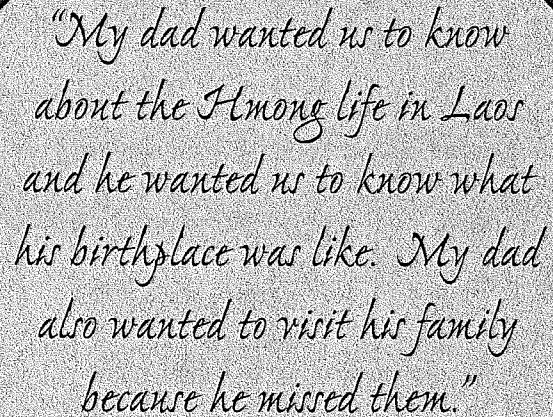 “My dad wanted us to know
about the Hmong life in Laos
and he wanted us to know what
his birthplace was like. My dad
also wanted to visit his family
because he missed them.”